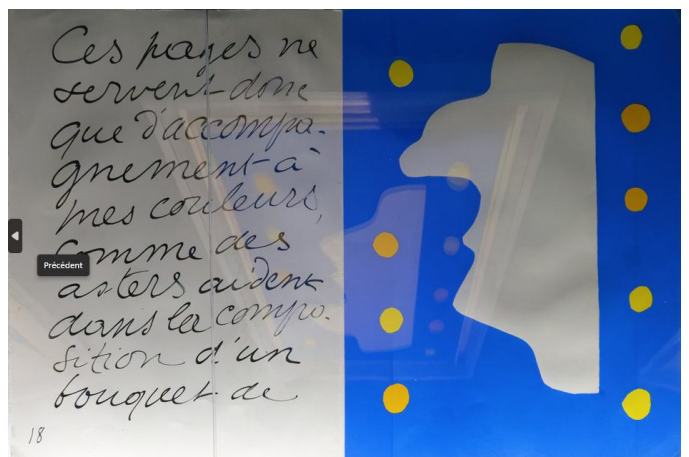 Ces pages ne
servent donc
que d'accompa-
gnement à
mes couleurs,
comme des
asters aident
dans la compo-
sition d'un
bouquet de
18
Précédent